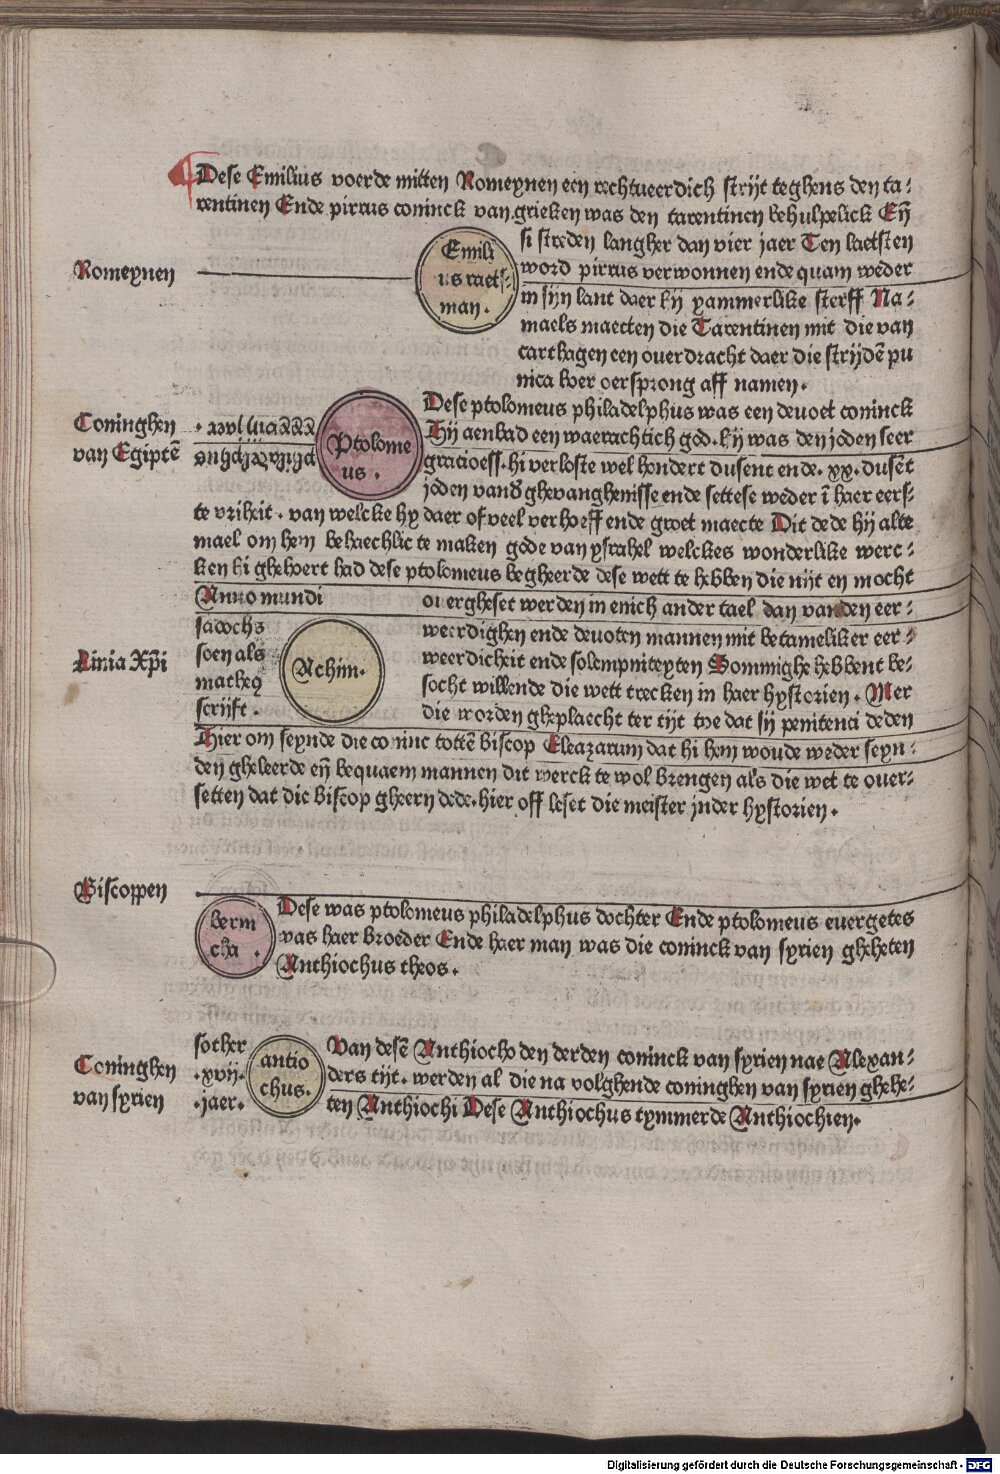 Dese Emilius voerde mitten Romeynen een rechtueerdich strijt teghens den ta⸗
rentinen Ende pirrus coninck van grieken was den tarentinen behulpelick Eñ
Romeynen
Emili
us raets⸗
man .
si streden langher dan vier jaer Ten laetsten
word pirrus verwonnen ende quam weder
in sijn lant daer hij yammerlike sterff Na⸗
maels maecten die Tarentinen mit die van
carthagen een ouerdracht daer die strijdē pu
nica hoer oersprong aff namen.
Coninghen
van Egiptē
philadelphus
xxxviij jaer .
Ptolome
us .
Dese ptolomeus philadelphus was een deuoet coninck
Hij aenbad een waerachtich god. hij was den joden seer
gracioess. hi verloste wel hondert dusent ende. xx. dusēt
joden vand' ghevanghenisse ende settese weder ī haer eers⸗
te vriheit . van welcke hy daer of veel verhoeff ende groet maecte Dit dede hij alte
mael om hem behaechlic te maken gode van ysrahel welckes wonderlike werc⸗
ken hi ghehoert had dese ptolomeus begheerde dese wett te hebben die nijt en mocht
Anno mundi
ouergheset werden in enich ander tael dan van den eer⸗
weerdighen ende deuoten mannen mit betameliker eer⸗
weerdicheit ende solempniteyten Sommighe hebbent be⸗
socht willende die wett trecken in haer hystorien . Mer
die worden gheplaecht ter tijt toe dat sij penitenci deden
Linia Xp̄i
sadochs
soen als
matheꝯ
scrijft .
Achim.
Hier om seynde die coninc tottē biscop Eleazarum dat hi hem woude weder seyn⸗
den gheleerde eñ bequaem mannen dit werck te wol brengen als die wet te ouer⸗
setten dat die biscop gheern dede. hier off leset die meister jnder hystorien .
Biscoppen
bern
cha .
Dese was ptolomeus philadelphus dochter Ende ptolomeus euergetes
was haer broeder Ende haer man was die coninck van syrien gheheten
Anthiochus theos .
Coninghen
van syrien
sother
.xvij.
.jaer.
antio
chus.
Van desē Anthiocho den derden coninck van syrien nae Alexan⸗
ders tijt . werden al die na volghende coninghen van syrien ghehe⸗
ten Anthiochi Dese Anthiochus tymmerde Anthiochien.
Digitalisierung gefördert durch die Deutsche Forschungsgemeinschaft - DFG